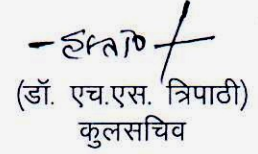 (डॉ. एच.एस. त्रिपाठी)
कुलसचिव